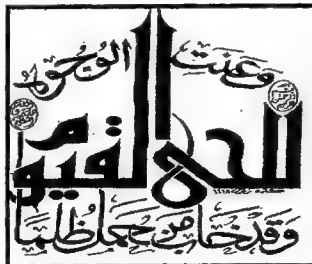 وعنت الوجوه
للحي القيوم
وقد خاب من حمل ظلما